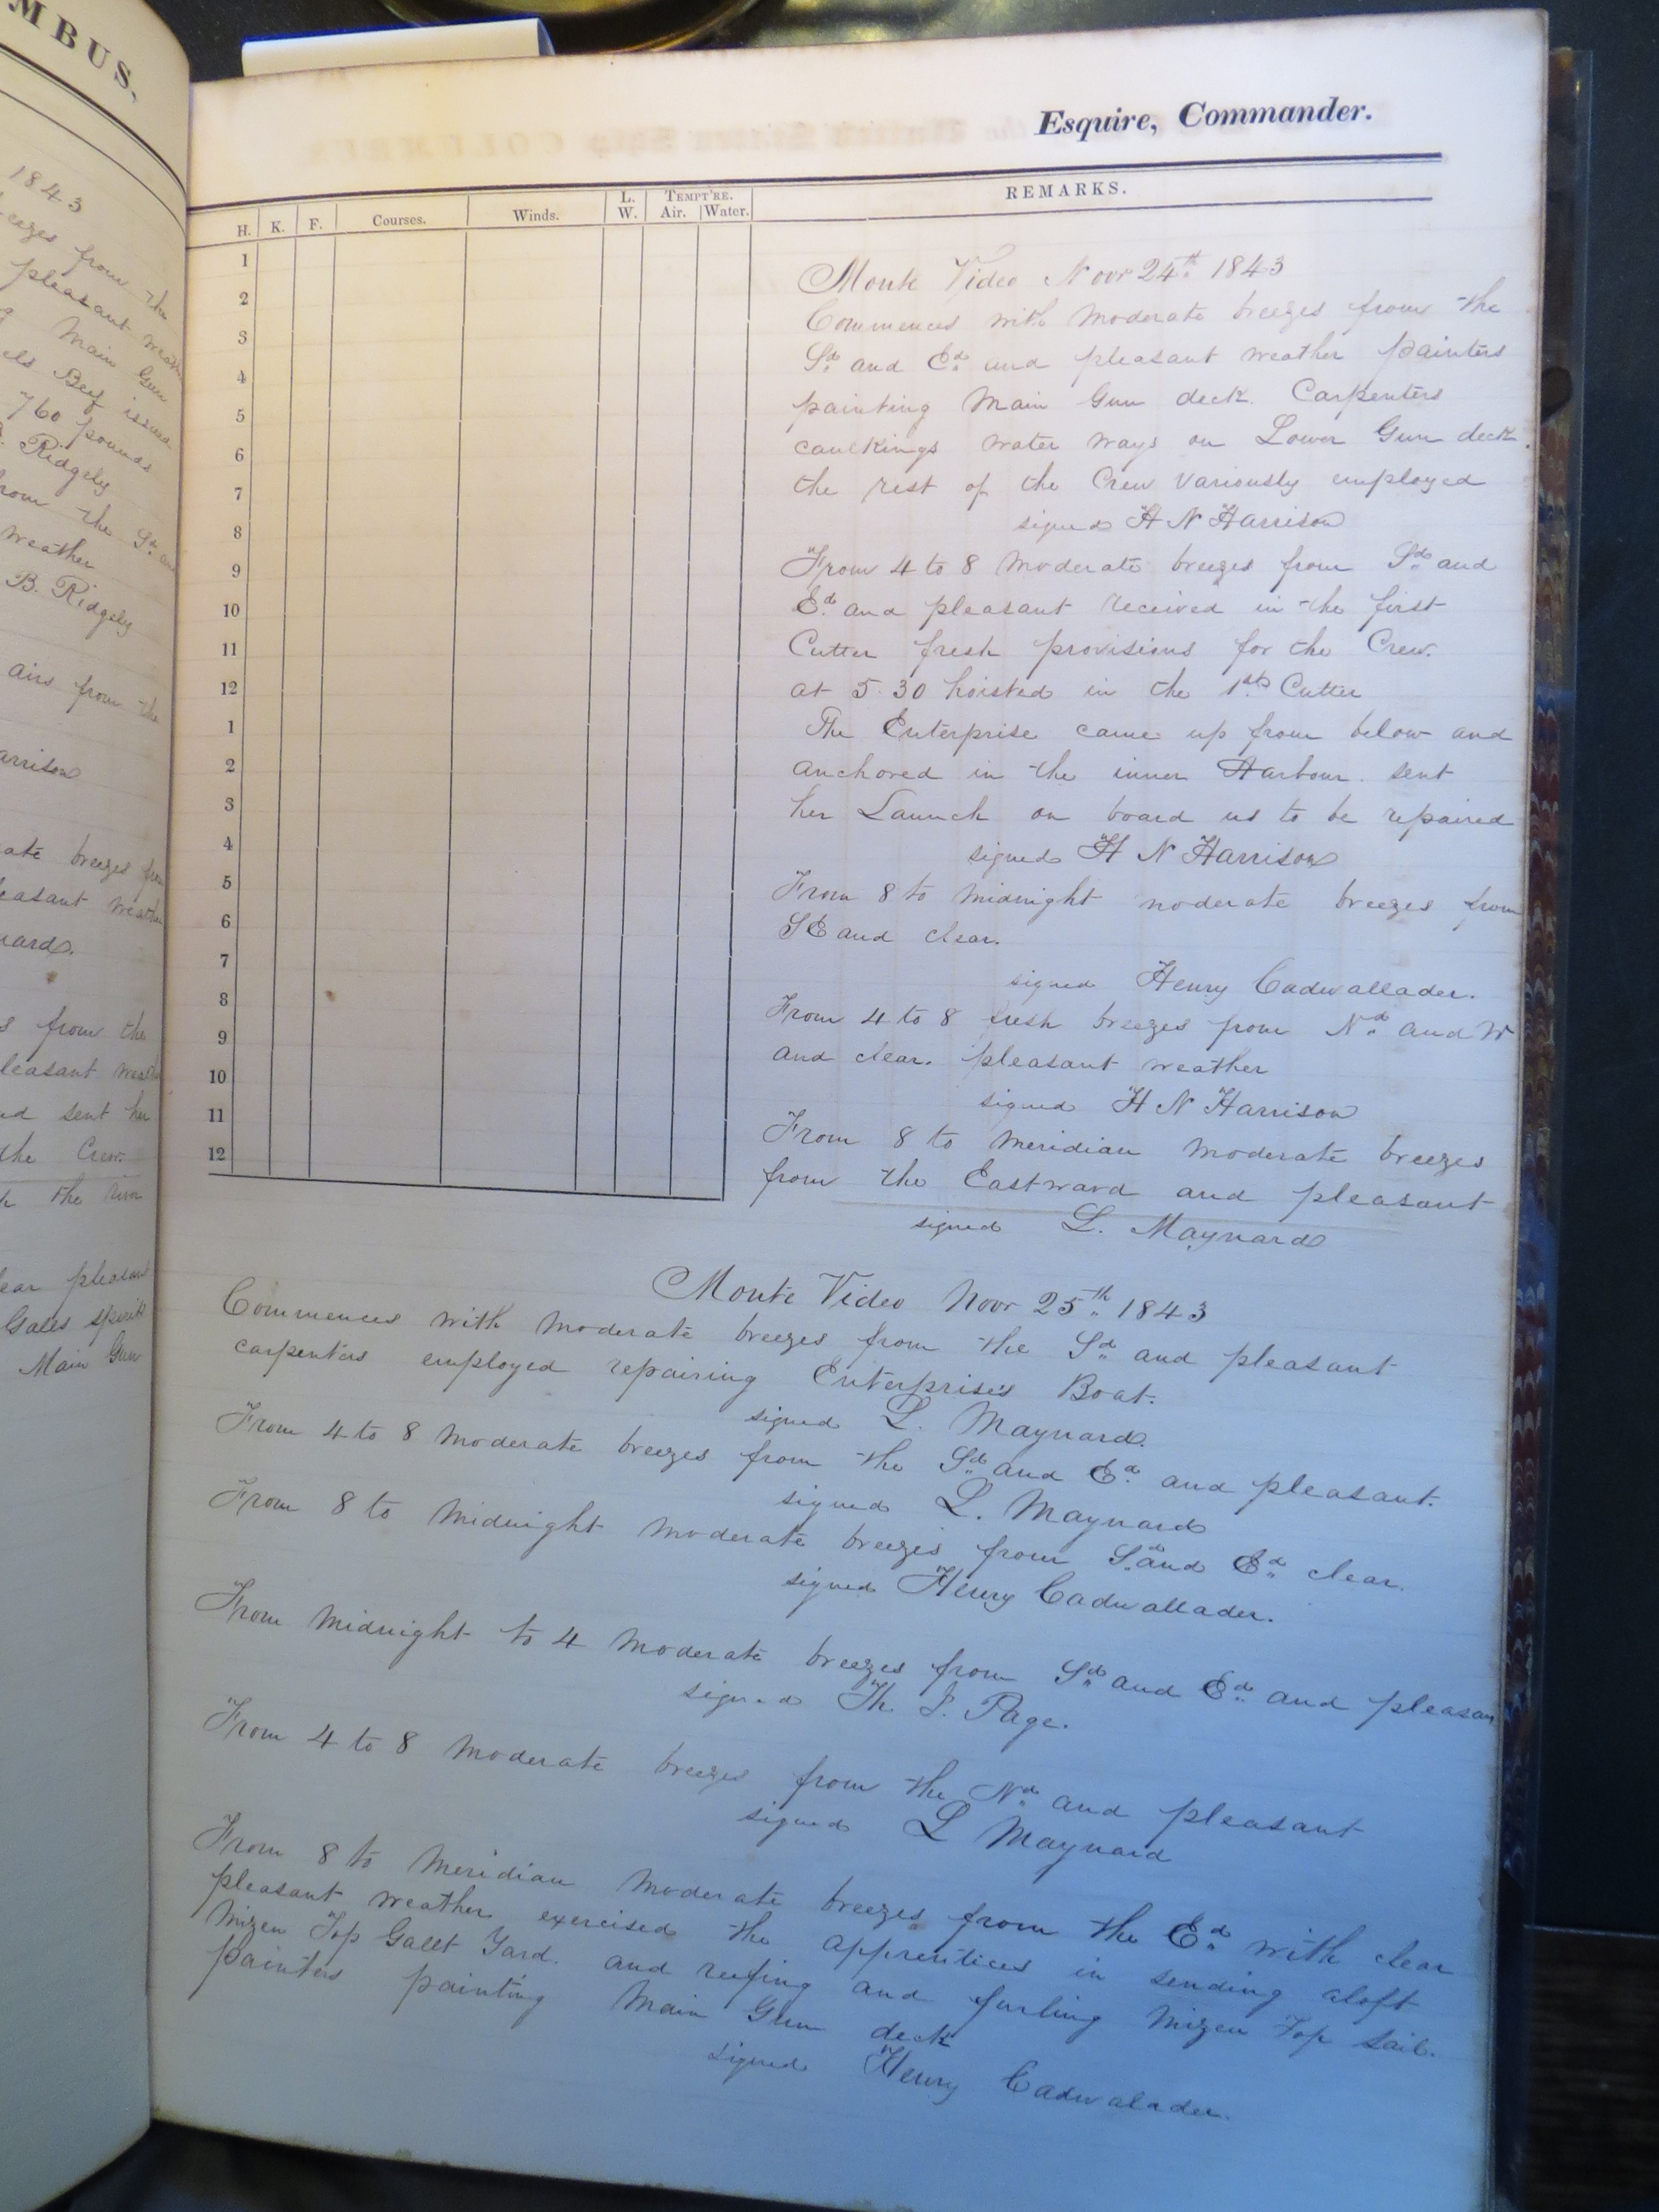 MBUS.
1843
pleasant weath
Main Gun
els Beef issued
760 pounds
Ridgely
from the Sd. an
weather
B. Ridgely
airs from the
arrison
ate breezes from
easant weather
nard.
s from the
leasant weath
nd sent her
the Crew.
the river
ear pleasant
Gales spirits
Main Gun
Esquire, Commander.
H. K. F. Courses. Winds. L. W. TEMPT'RE. Air. Water. REMARKS.
1
2
3
4
5
6
7
8
9
10
11
12
1
2
3
4
5
6
7
8
9
10
11
12
Monte Video Novr 24th. 1843
Commences with moderate breezes from the
Sd. and Ed. and pleasant weather painters
painting Main Gun deck. Carpenters
caulkings water ways on Lower Gun deck.
the rest of the Crew variously employed
signed H N Harrison
From 4 to 8 moderate breezes from Sd. and
Ed. and pleasant received in the first
Cutter fresh provisions for the Crew.
at 5.30 hoisted in the 1st Cutter
The Enterprise came up from below and
anchored in the inner Harbour. sent
her Launch on board us to be repaired
signed H N Harrison
From 8 to midnight moderate breezes from
SE and clear.
signed Henry Cadwallader.
From 4 to 8 fresh breezes from Nd. and W
and clear. pleasant weather
signed H N Harrison
From 8 to meridian moderate breezes
from the Eastward and pleasant
signed L. Maynard
Monte Video Novr 25th. 1843
Commences with moderate breezes from the Sd. and pleasant
carpenters employed repairing Enterprises Boat.
signed L. Maynard.
From 4 to 8 moderate breezes from the Sd. and Ed. and pleasant.
signed L. Maynard
From 8 to midnight moderate breezes from Sd. and Ed. clear.
signed Henry Cadwallader.
From midnight to 4 moderate breezes from Sd. and Ed. and pleasan
signed Th. J. Page.
From 4 to 8 moderate breezes from the Nd. and pleasant
signed L Maynard
From 8 to meridian moderate breezes from the Ed. with clear
pleasant weather exercised the apprentices in sending aloft
Mizen Top Gallt Yard. and reefing and furling Mizen Top Sail.
painters painting Main Gun deck
signed Henry Cadwalader.